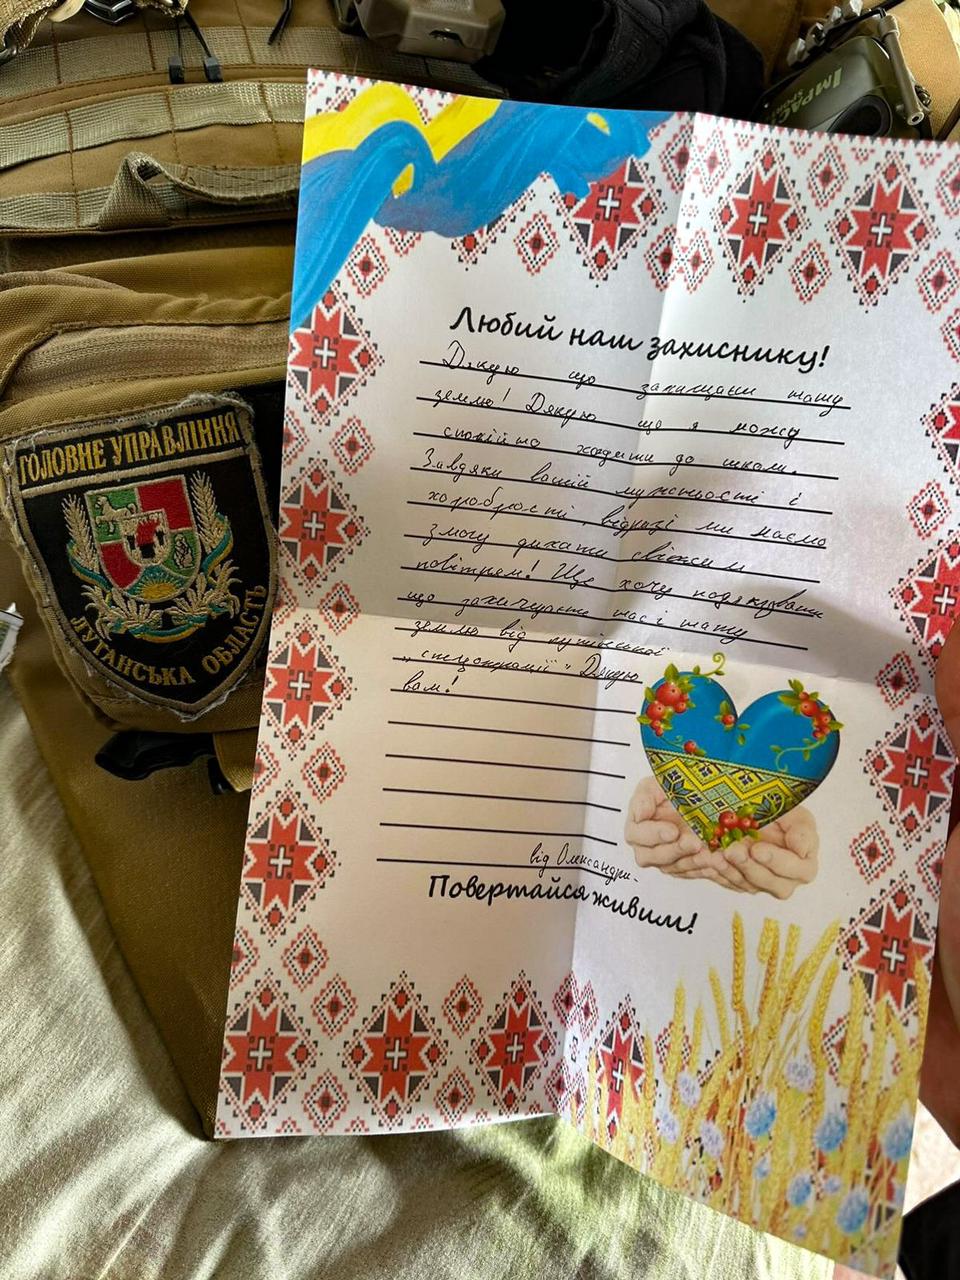 IMPAC
ГОЛОВНЕ УПРАВЛІННЯ
ЛУГАНСЬКА ОБЛАСТЬ
Любий наш захиснику!
Дякую що захищаєш нашу
землю! Дякую що я можу
спокійно ходити до школи.
Завдяки вашій мужності і
хоробрості, відвазі ми маємо
змогу дихати свіжим
повітрям! Ще хочу подякувати
що захищуєте нас і нашу
землю від путінської
"спецоперації" Дякую
вам!
від Олександри.
Повертайся живим!